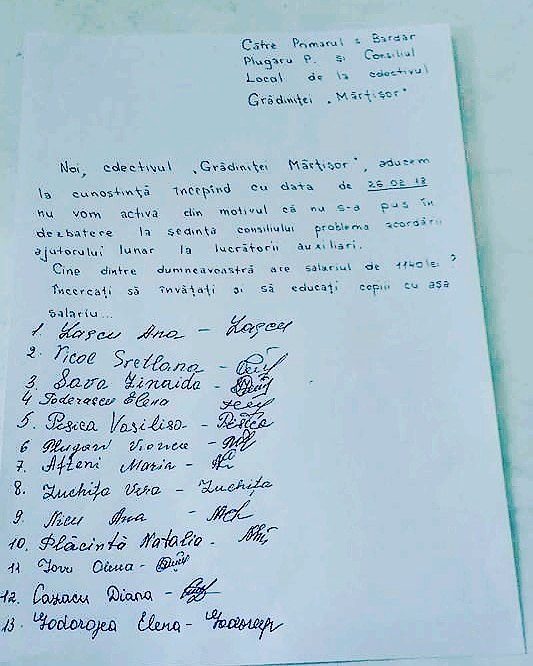 Către Primarul s Bardar
Plugaru P. și Consiliul
Local de la colectivul
Grădiniței „Mărțișor"
Noi, colectivul „Grădiniței Mărțișor", aducem
la cunoștință începînd cu data de 26 02 18
nu vom activa din motivul că nu s-a pus în
dezbatere la ședința consiliului problema acordării
ajutorului lunar la lucrătorii auxiliari.
Cine dintre dumneavoastră are salariul de 1140 lei?
Încercați să învățați și să educați copiii cu așa
salariu...
1. Lașcu Ana - Lașcu
2. Nicol Svetlana -
3. Sava Zinaida -
4 Toderașcu Elena
5. Pisica Vasilisa -
6 Plugari Viorica -
7. Afteni Maria -
8. Zuchița Vera - Zuchița
9. Nicu Ana -
10. Plăcintă Natalia -
11 Iovu Olena -
12. Cazacu Diana -
13. Todorojea Elena -